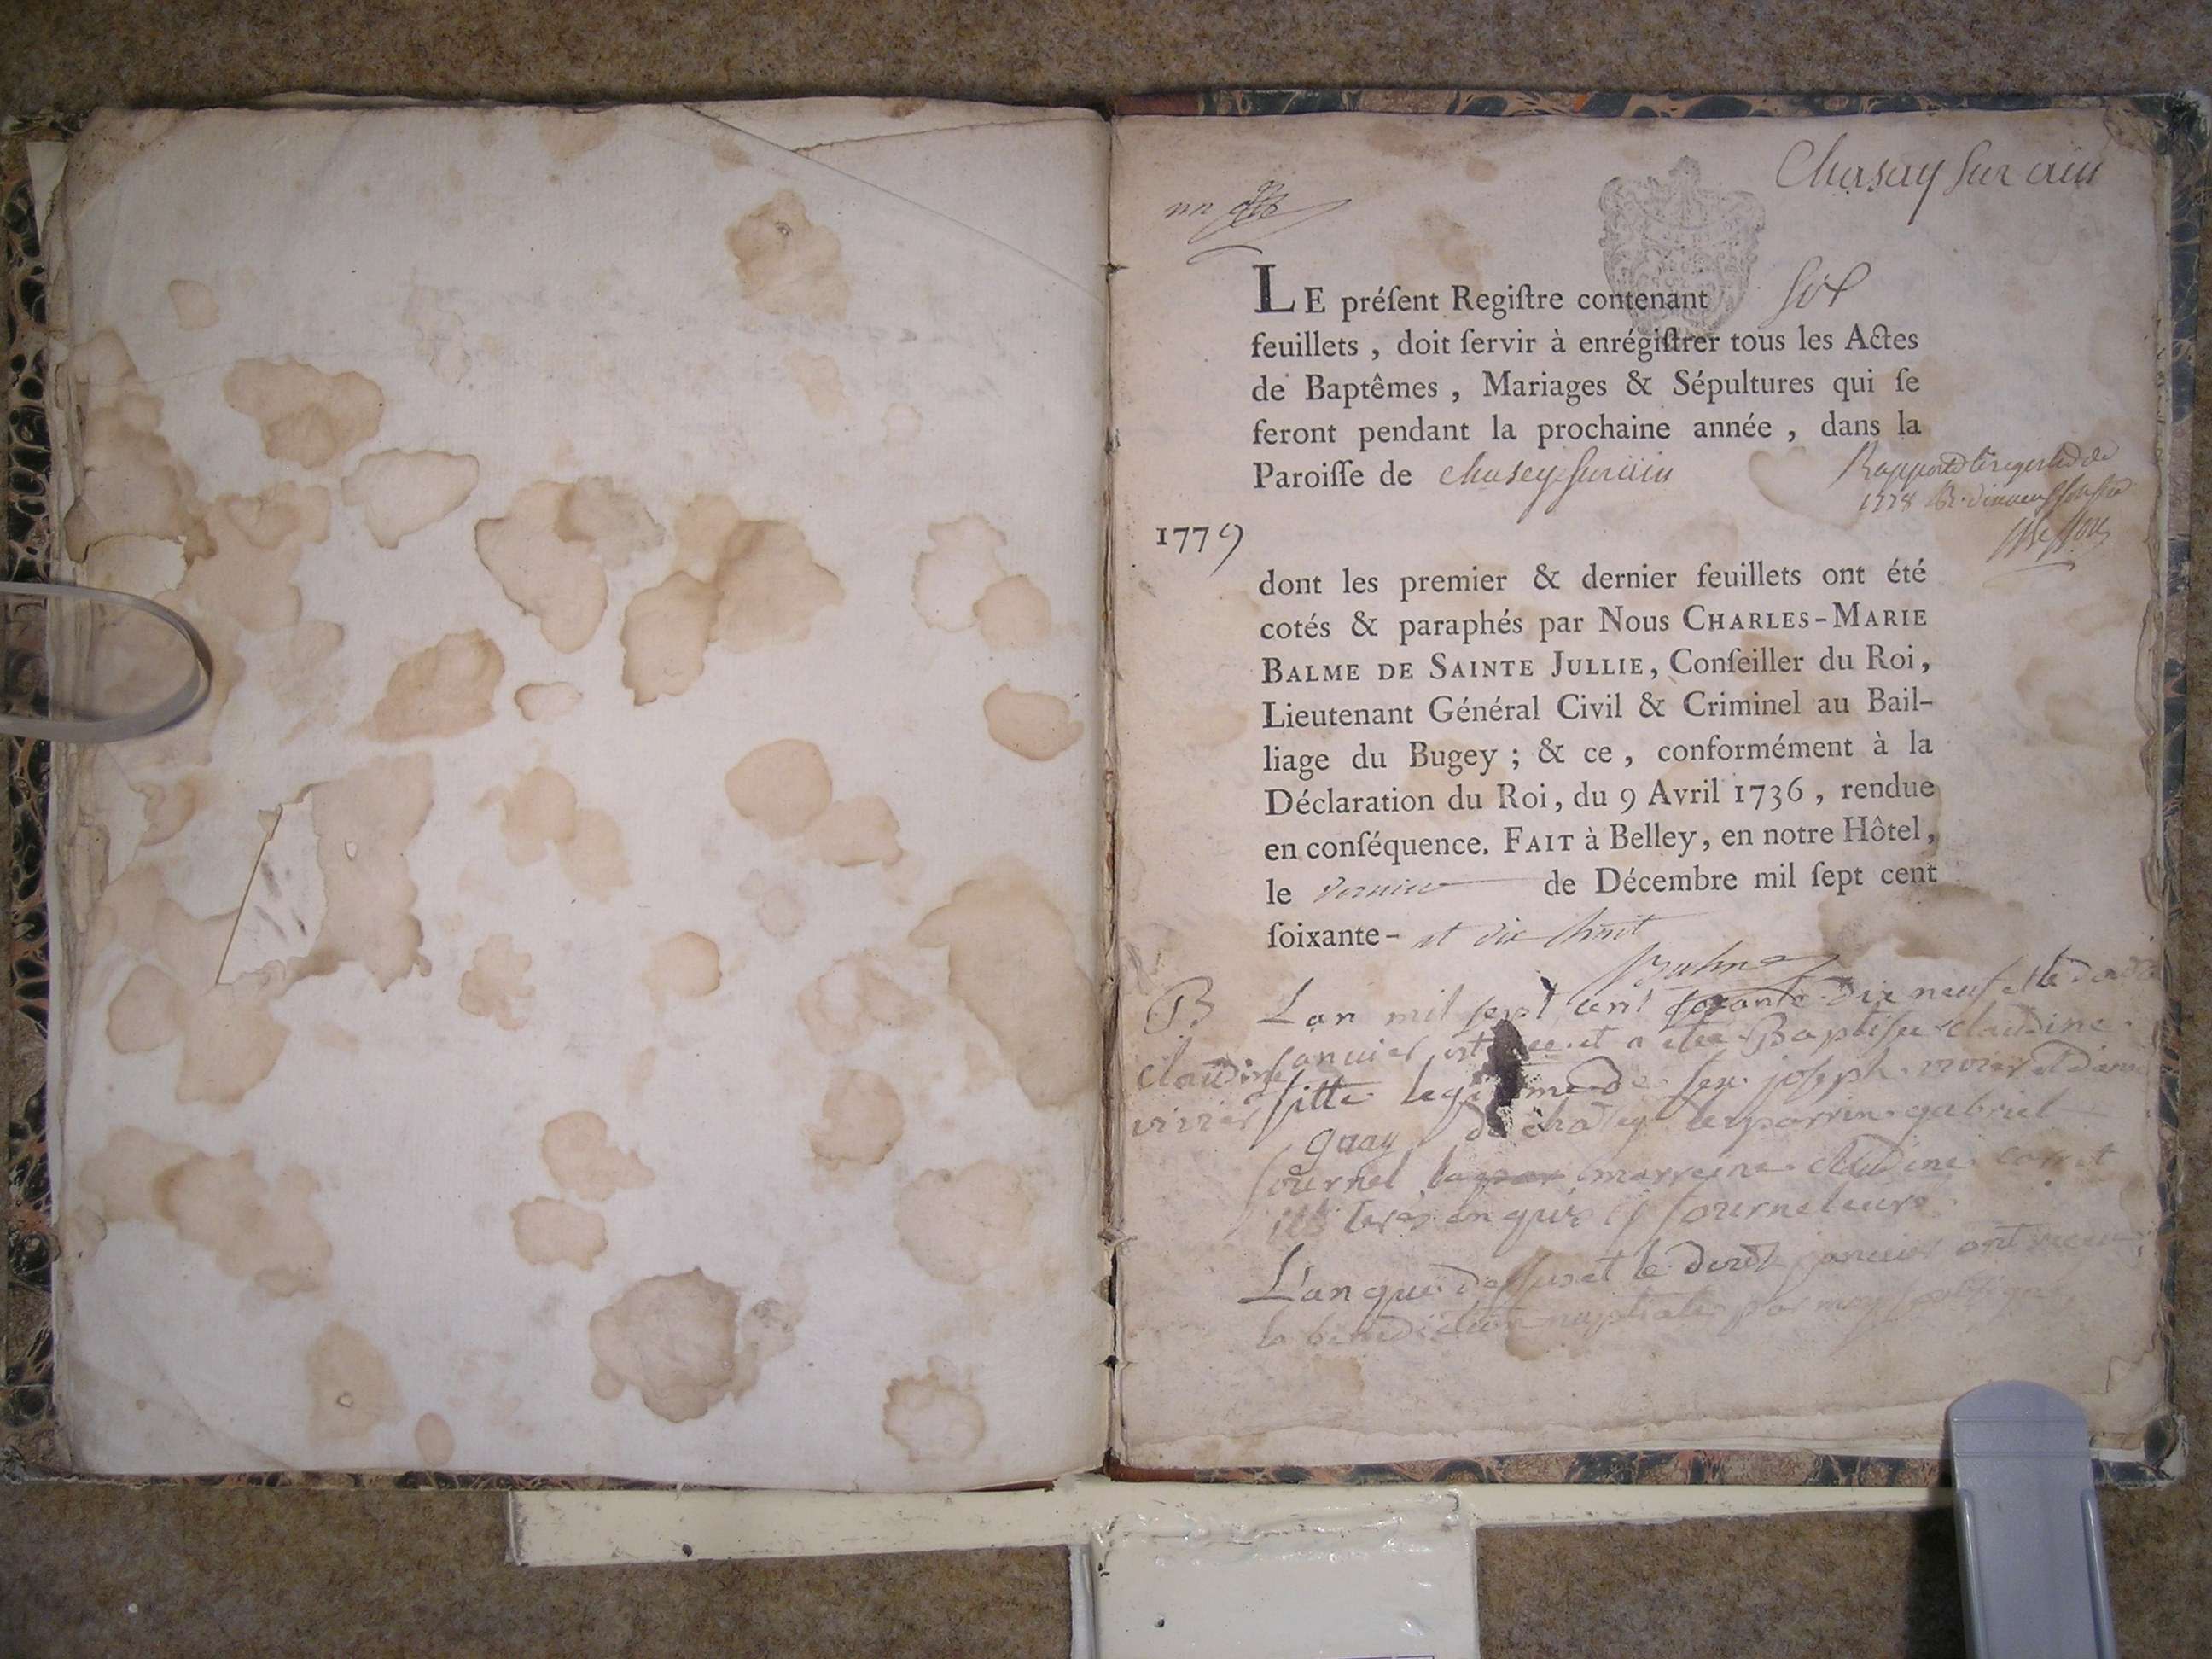 Chasay sur ain
un
LE préſent Regiſtre contenant six
feuillets, doit ſervir à enrégiſtrer tous les Actes
de Baptêmes, Mariages & Sépultures qui ſe
feront pendant la prochaine année, dans la
Paroiſſe de chasey sur ain
Rapporté le registre de
1778
1779
dont les premier & dernier feuillets ont été
cotés & paraphés par Nous CHARLES-MARIE
BALME DE SAINTE JULLIE, Conſeiller du Roi,
Lieutenant Général Civil & Criminel au Bail-
liage du Bugey ; & ce, conformément à la
Déclaration du Roi, du 9 Avril 1736, rendue
en conſéquence. FAIT à Belley, en notre Hôtel,
le dernier de Décembre mil ſept cent
ſoixante- et dix huit
Balme
B
claudine
vivier
Lan mil sept cent soixante dix neuf et le
janvier est née et a eté Baptisée claudine
fille legitime de feu joseph vivier et
guay de chasey le parrin gabriel
fournel marreine claudine
fourneleurs
L'an que dessus et le douze janvier ont receu
la benediction nuptiale par moy soussigné